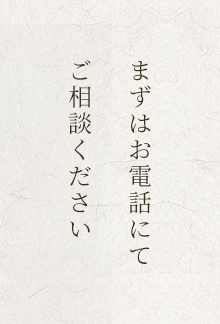 まずはお電話にて
ご相談ください